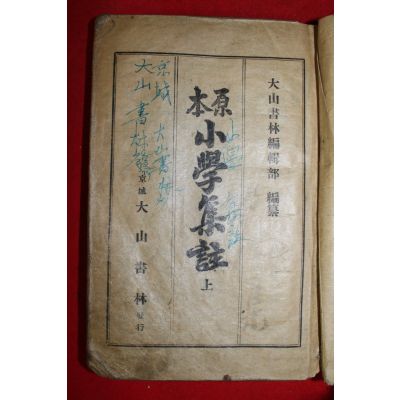 大山書林編輯部 編纂
原本
小學集註
上
京城 大山書林發行
京城 大山書林
大山書林發